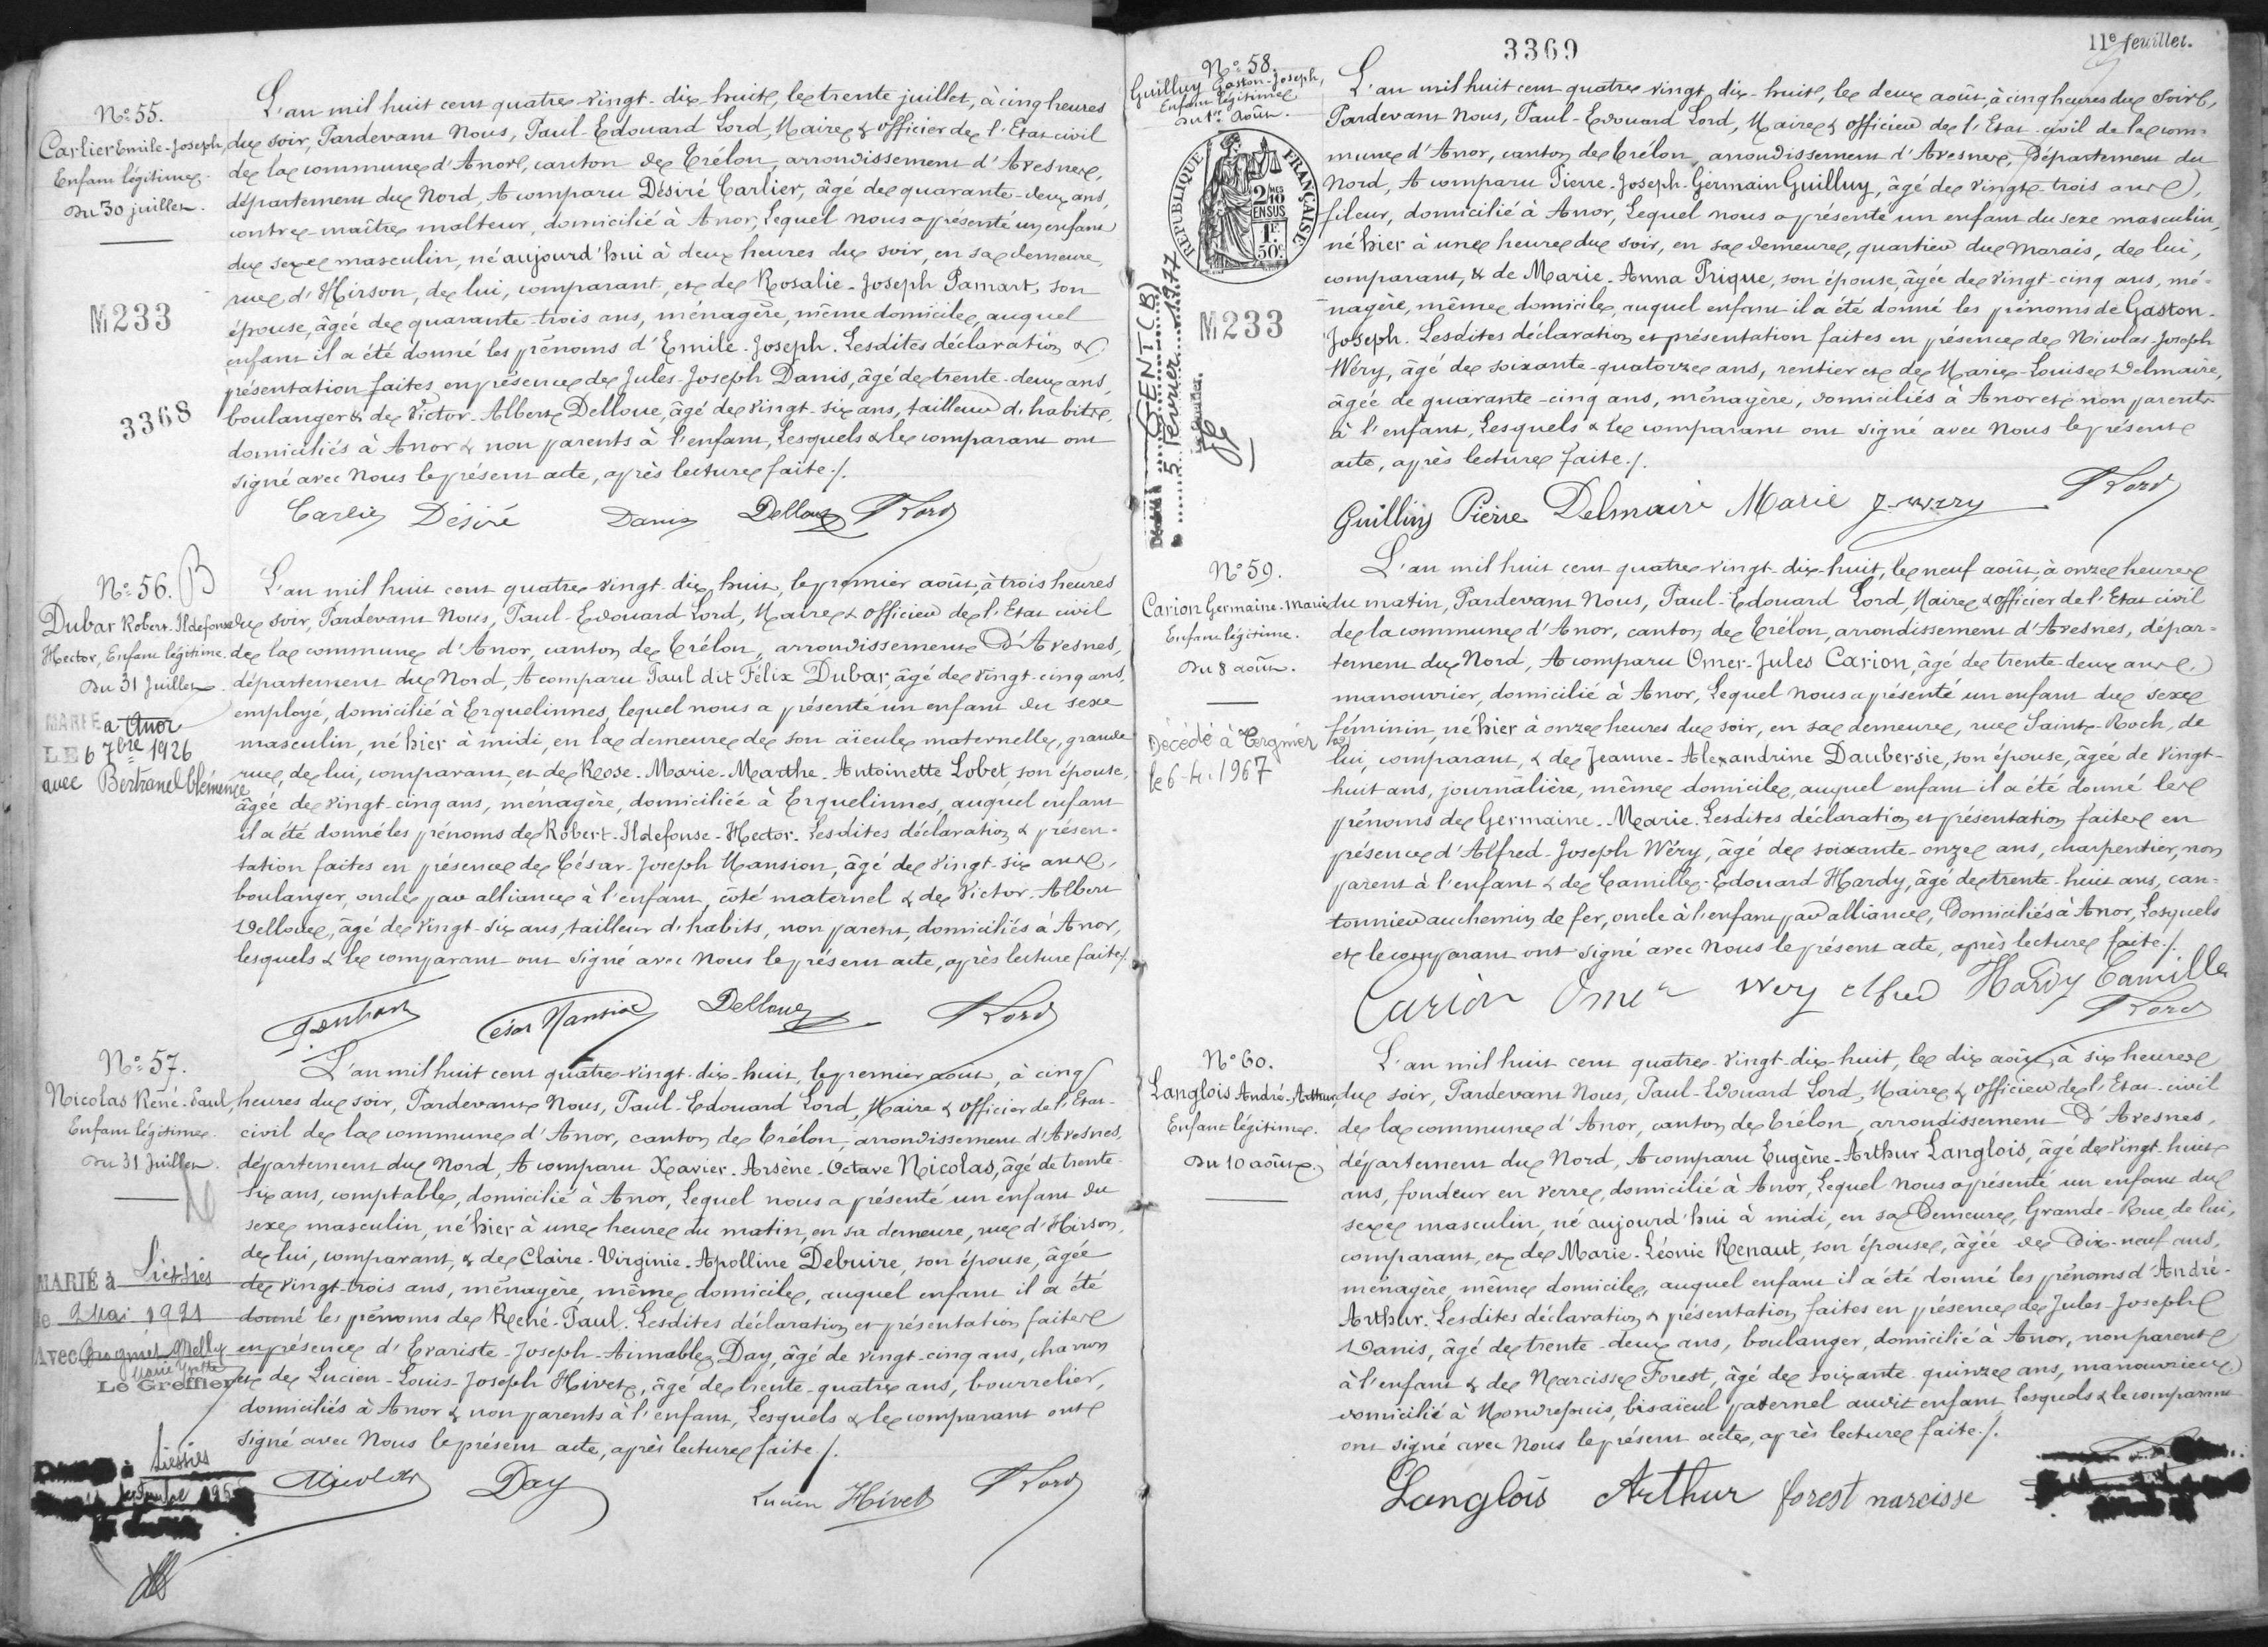 N° 55.
Carlier Emile-Joseph,
Enfant légitime.
Du 30 juillet.
M233
3368
L'an mil huit cent quatre-vingt-dix-huit, le trente juillet, à cinq heures
du soir, Pardevant Nous, Paul-Edouard Lord, Maire & officier de l'Etat civil
de la commune d'Anor, canton de Trélon, arrondissement d'Avesnes,
département du Nord, A comparu Désiré Carlier, âgé de quarante-deux ans,
contre-maître malteur, domicilié à Anor, Lequel nous a présenté un enfant
du sexe masculin, né aujourd'hui à deux heures du soir, en sa demeure,
rue d'Hirson, de lui, comparant, et de Rosalie-Joseph Pamart, son
épouse, âgée de quarante-trois ans, ménagère, même domicile, auquel
enfant il a été donné les prénoms d'Emile-Joseph. Lesdites déclaration &
présentation faites en présence de Jules-Joseph Danis, âgé de trente-deux ans,
boulanger & de Victor-Albert Delloue, âgé de vingt-six ans, tailleur d'habits,
domiciliés à Anor & non parents à l'enfant, Lesquels & le comparant ont
signé avec Nous le présent acte, après lecture faite ./.
Carlier Désiré Danis Delloue P Lord
N° 56. B
Dubar Robert-Ildefonse
Hector, Enfant légitime.
Du 31 Juillet.
MARIE a Anor
LE 6 7bre 1926
avec Bertrand Clémence
L'an mil huit cent quatre-vingt-dix-huit, le premier août, à trois heures
du soir, Pardevant Nous, Paul-Edouard Lord, Maire & officier de l'Etat civil
de la commune d'Anor, canton de Trélon, arrondissement D'Avesnes,
département du Nord, A comparu Paul dit Félix Dubar, âgé de vingt-cinq ans,
employé, domicilié à Erquelinnes, lequel nous a présenté un enfant du sexe
masculin, né hier à midi, en la demeure de son aïeule maternelle, grande
rue, de lui, comparant, et de Rose-Marie-Marthe-Antoinette Lobet, son épouse,
âgée de vingt-cinq ans, ménagère, domiciliée à Erquelinnes, auquel enfant
il a été donné les prénoms de Robert-Ildefonse-Hector. Lesdites déclaration & présen-
tation faites en présence de César-Joseph Mansion, âgé de vingt-six ans,
boulanger, oncle par alliance à l'enfant, côté maternel & de Victor-Albert
Delloue, âgé de vingt-six ans, tailleur d'habits, non parent, domiciliés à Anor,
lesquels & le comparant ont signé avec Nous le présent acte, après lecture faite ./.
F. Dubar César Mansion Delloue P Lord
N° 57.
Nicolas René-Paul,
Enfant légitime.
Du 31 Juillet.
MARIÉ à Liessies
le 2 Mai 1921
Avec Nelly
Marie
Le Greffier
Liessies
L'an mil huit cent quatre-vingt-dix-huit, le premier août, à cinq
heures du soir, Pardevant Nous, Paul-Edouard Lord, Maire & officier de l'Etat-
civil de la commune d'Anor, canton de Trélon, arrondissement d'Avesnes,
département du Nord, A comparu Xavier-Arsène-Octave Nicolas, âgé de trente-
six ans, comptable, domicilié à Anor, Lequel nous a présenté un enfant du
sexe masculin, né hier à une heure du matin, en sa demeure, rue d'Hirson,
de lui, comparant, & de Claire-Virginie-Apolline Debuire, son épouse, âgée
de vingt-trois ans, ménagère, même domicile, auquel enfant il a été
donné les prénoms de René-Paul. Lesdites déclaration et présentation faites
en présence d'Evariste-Joseph-Aimable Day, âgé de vingt-cinq ans, charron
et de Lucien-Louis-Joseph Hivet, âgé de trente-quatre ans, bourrelier,
domiciliés à Anor & non parents à l'enfant, Lesquels & le comparant ont
signé avec Nous le présent acte, après lecture faite ./.
Nicolas Day Lucien Hivet P Lord
3369
11e feuillet.
N° 58.
Guilluy Gaston-Joseph,
Enfant légitime
Du 1er Août.
REPUBLIQUE FRANÇAISE
2/10 EN SUS
1F 50c
M233
Décédé à GENT (B)
le 5 Février 1977
L'an mil huit cent quatre-vingt-dix-huit, le deux août, à cinq heures du soir,
Pardevant Nous, Paul-Edouard Lord, Maire & officier de l'Etat-civil de la com-
mune d'Anor, canton de Trélon, arrondissement d'Avesnes, Département du
Nord, A comparu Pierre-Joseph-Germain Guilluy, âgé de vingt-trois ans,
fileur, domicilié à Anor, Lequel nous a présenté un enfant du sexe masculin,
né hier à une heure du soir, en sa demeure, quartier du Marais, de lui,
comparant, & de Marie-Anna Prique, son épouse, âgée de vingt-cinq ans, mé-
nagère, même domicile, auquel enfant il a été donné les prénoms de Gaston-
Joseph. Lesdites déclaration et présentation faites en présence de Nicolas-Joseph
Wéry, âgé de soixante-quatorze ans, rentier et de Marie-Louise Delmaire,
âgée de quarante-cinq ans, ménagère, domiciliés à Anor et non parents
à l'enfant, Lesquels & le comparant ont signé avec Nous le présent
acte, après lecture faite ./.
Guilluy Pierre Delmaire Marie J. Wery P Lord
N° 59.
Carion Germaine-Marie
Enfant légitime.
Du 8 août.
Décédé à Tergnier
le 6-4-1967
L'an mil huit cent quatre-vingt-dix-huit, le neuf août, à onze heures
du matin, Pardevant Nous, Paul-Edouard Lord, Maire & officier de l'Etat civil
de la commune d'Anor, canton de Trélon, arrondissement d'Avesnes, dépar-
tement du Nord, A comparu Omer-Jules Carion, âgé de trente-deux ans,
manouvrier, domicilié à Anor, Lequel nous a présenté un enfant du sexe
féminin, né hier à onze heures du soir, en sa demeure, rue Saint-Roch, de
lui, comparant, & de Jeanne-Alexandrine Daubersie, son épouse, âgée de vingt-
huit ans, journalière, même domicile, auquel enfant il a été donné les
prénoms de Germaine-Marie. Lesdites déclaration et présentation faites en
présence d'Alfred-Joseph Wéry, âgé de soixante-onze ans, charpentier, non
parent à l'enfant & de Camille-Edouard Hardy, âgé de trente-huit ans, can-
tonnier au chemin de fer, oncle à l'enfant par alliance, Domiciliés à Anor, Lesquels
et le comparant ont signé avec Nous le présent acte, après lecture faite ./.
Carion Omer Wery Alfred Hardy Camille
P Lord
N° 60.
Langlois André-Arthur,
Enfant légitime.
Du 10 août.
L'an mil huit cent quatre-vingt-dix-huit, le dix août, à six heures
du soir, Pardevant Nous, Paul-Edouard Lord, Maire & officier de l'Etat-civil
de la commune d'Anor, canton de Trélon, arrondissement D'Avesnes,
département du Nord, A comparu Eugène-Arthur Langlois, âgé de vingt-huit
ans, fondeur en verre, domicilié à Anor, Lequel Nous a présenté un enfant du
sexe masculin, né aujourd'hui à midi, en sa Demeure, Grande-Rue, de lui,
comparant, et de Marie-Léonie Renaut, son épouse, âgée de Dix-neuf ans,
ménagère, même domicile, auquel enfant il a été donné les prénoms d'André-
Arthur. Lesdites déclaration & présentation faites en présence de Jules-Joseph
Danis, âgé de trente-deux ans, boulanger, domicilié à Anor, non parent
à l'enfant & de Narcisse Forest, âgé de soixante-quinze ans, manouvrier
domicilié à Mondrepuis, bisaïeul paternel audit enfant, Lesquels & le comparant
ont signé avec Nous le présent acte, après lecture faite ./.
Langlois Arthur forest narcisse